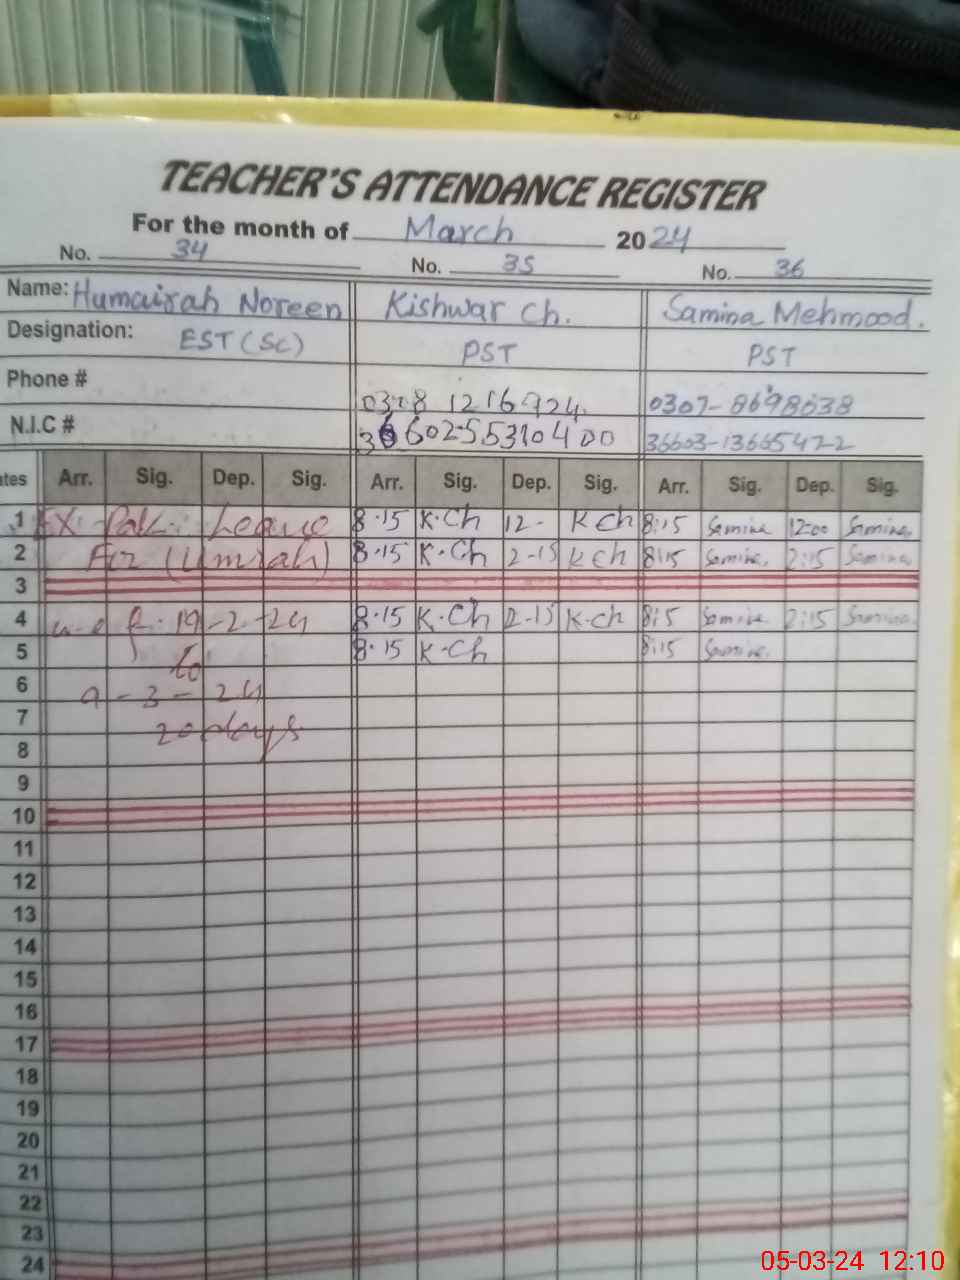 TEACHER'S ATTENDANCE REGISTER
For the month of March 2024
No. 34 No. 35 No. 36
Name: Humairah Noreen Kishwar Ch. Samina Mehmood.
Designation: EST (SC) PST PST
Phone # 0307-8698638
N.I.C #
Arr. Sig. Dep. Sig. Arr. Sig. Dep. Sig. Arr. Sig. Dep. Sig.
1 Ex. Pak. Leave 8.15 K.Ch 12- K Ch 8:15 Samina 12:00 Samina
2 For (Umrah) 8.15 K.Ch 2-15 K Ch 8:15 Samina. 2:15 Samina
3
4 w.e.f. 19-2-24 8.15 K.Ch 2-15 K.Ch 8:15 Samina 2:15 Samina
5 to 8.15 K.Ch 8:15 Samina.
6 9-3-24
7 20 days
8
9
10
11
12
13
14
15
16
17
18
19
20
21
22
23
24
05-03-24 12:10